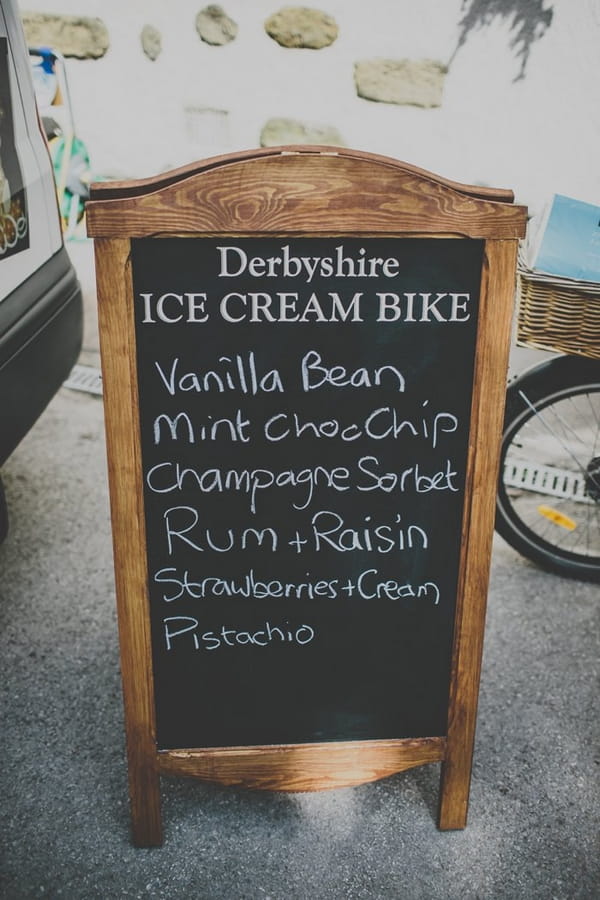 Derbyshire
ICE CREAM BIKE
Vanilla Bean
Mint Choc Chip
Champagne Sorbet
Rum + Raisin
Strawberries + Cream
Pistachio